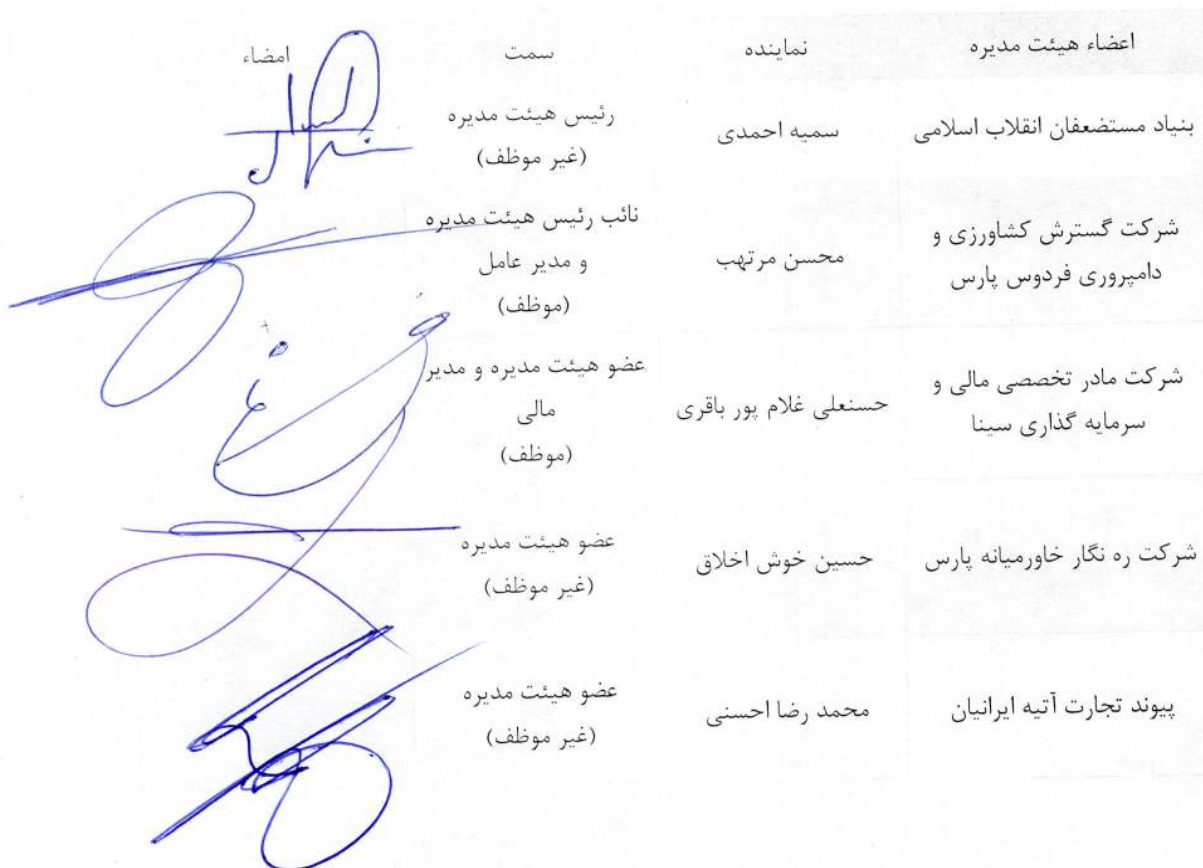 اعضاء هیئت مدیره نماینده سمت امضاء
بنیاد مستضعفان انقلاب اسلامی سمیه احمدی رئیس هیئت مدیره
(غیر موظف)
شرکت گسترش کشاورزی و
دامپروری فردوس پارس
محسن مرتهب
نائب رئیس هیئت مدیره
و مدیر عامل
(موظف)
شرکت مادر تخصصی مالی و
سرمایه گذاری سینا
حسنعلی غلام پور باقری
عضو هیئت مدیره و مدیر
مالی
(موظف)
شرکت ره نگار خاورمیانه پارس حسین خوش اخلاق عضو هیئت مدیره
(غیر موظف)
پیوند تجارت آتیه ایرانیان محمد رضا احسنی عضو هیئت مدیره
(غیر موظف)